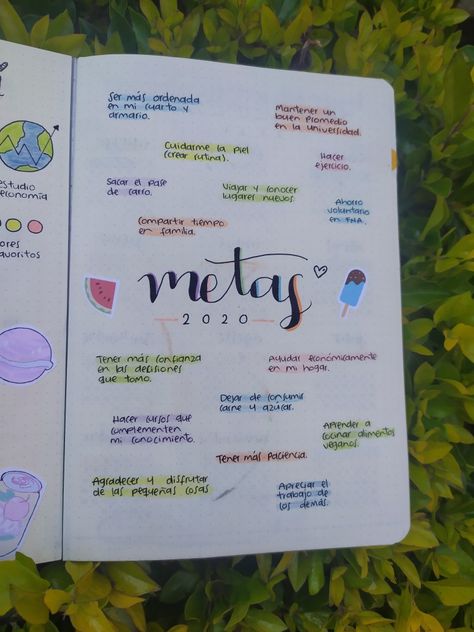 estudio
economía
ores
favoritos
Ser más ordenada
en mi cuarto y
armario.
Mantener un
buen promedio
en la universidad.
Cuidarme la piel
(crear rutina).
Hacer
ejercicio.
Sacar el pase
de carro.
Viajar y conocer
lugares nuevos.
Ahorro
voluntario
en FNA.
Compartir tiempo
en familia.
metas
2020
Tener más confianza
en las decisiones
que tomo.
Ayudar económicamente
en mi hogar.
Dejar de consumir
carne y azúcar.
Hacer cursos que
complementen
mi conocimiento.
Aprender a
cocinar alimentos
veganos.
Tener más paciencia.
Agradecer y disfrutar
de las pequeñas cosas
Apreciar el
trabajo de
los demás.